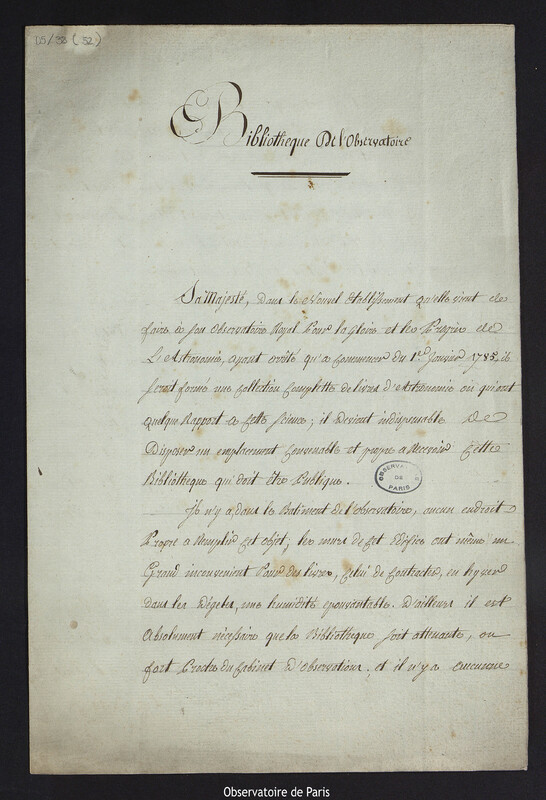 D5/38 (32)
Bibliotheque De l'Observatoire
Sa Majesté, dans le Nouvel établissement qu'elle vient de
faire à son Observatoire Royal Pour la Gloire et le Progrès de
L'Astronomie, ayant arrêté qu'a commencer du 1er Janvier 1785, il
seroit formé une Collection Complette de livres d'Astronomie ou qui ont
quelque Rapport a cette science; il devient indispensable De
Disposer un emplacement Convenable et propre a Recevoir Cette
Bibliotheque qui doit être Publique.
OBSERVATOIRE DE PARIS
Il n'y a dans le Batiment de l'observatoire, aucun endroit
Propre a Remplir cet objet; les murs de cet Edifice ont même un
Grand inconvenient Pour des livres, Celui de Contracter, en hyver
dans les Dégels, une humidité épouvantable. D'ailleurs il est
Absolument nécessaire que la Bibliotheque soit attenante, ou
fort Proche du Cabinet D'observations, et il n'y a aucune
Observatoire de Paris